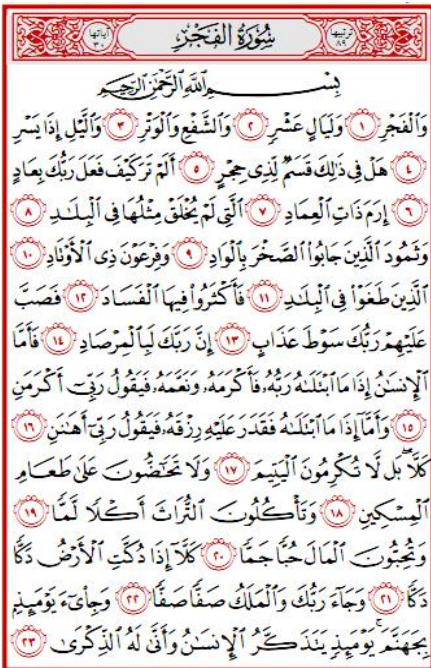 ترتيبها ٨٩ سُورَةُ الفَجْرِ آياتها ٣٠
بِسْمِ اللَّهِ الرَّحْمَٰنِ الرَّحِيمِ
وَالْفَجْرِ ١ وَلَيَالٍ عَشْرٍ ٢ وَالشَّفْعِ وَالْوَتْرِ ٣ وَاللَّيْلِ إِذَا يَسْرِ
٤ هَلْ فِي ذَٰلِكَ قَسَمٌ لِّذِي حِجْرٍ ٥ أَلَمْ تَرَ كَيْفَ فَعَلَ رَبُّكَ بِعَادٍ
٦ إِرَمَ ذَاتِ الْعِمَادِ ٧ الَّتِي لَمْ يُخْلَقْ مِثْلُهَا فِي الْبِلَٰدِ ٨
وَثَمُودَ الَّذِينَ جَابُوا الصَّخْرَ بِالْوَادِ ٩ وَفِرْعَوْنَ ذِي الْأَوْتَادِ ١٠
الَّذِينَ طَغَوْا فِي الْبِلَٰدِ ١١ فَأَكْثَرُوا فِيهَا الْفَسَادَ ١٢ فَصَبَّ
عَلَيْهِمْ رَبُّكَ سَوْطَ عَذَابٍ ١٣ إِنَّ رَبَّكَ لَبِالْمِرْصَادِ ١٤ فَأَمَّا
الْإِنسَٰنُ إِذَا مَا ابْتَلَىٰهُ رَبُّهُۥ فَأَكْرَمَهُۥ وَنَعَّمَهُۥ فَيَقُولُ رَبِّي أَكْرَمَنِ
١٥ وَأَمَّا إِذَا مَا ابْتَلَىٰهُ فَقَدَرَ عَلَيْهِ رِزْقَهُۥ فَيَقُولُ رَبِّي أَهَٰنَنِ ١٦
كَلَّا بَل لَّا تُكْرِمُونَ الْيَتِيمَ ١٧ وَلَا تَحَٰضُّونَ عَلَىٰ طَعَامِ
الْمِسْكِينِ ١٨ وَتَأْكُلُونَ التُّرَاثَ أَكْلًا لَّمًّا ١٩
وَتُحِبُّونَ الْمَالَ حُبًّا جَمًّا ٢٠ كَلَّا إِذَا دُكَّتِ الْأَرْضُ دَكًّا
دَكًّا ٢١ وَجَاءَ رَبُّكَ وَالْمَلَكُ صَفًّا صَفًّا ٢٢ وَجِا۟ىٓءَ يَوْمَئِذٍ
بِجَهَنَّمَ ۚ يَوْمَئِذٍ يَتَذَكَّرُ الْإِنسَٰنُ وَأَنَّىٰ لَهُ الذِّكْرَىٰ ٢٣